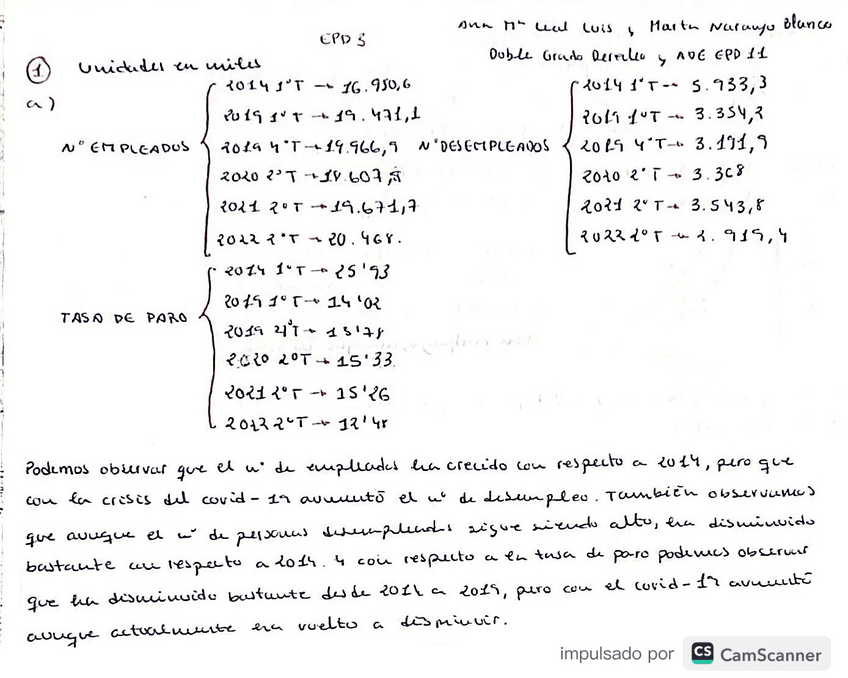 Ana Mª Leal Luis y Marta Naranjo Blanco
EPD 3
Doble Grado Derecho y ADE EPD 11
① Unidades en miles
a)
Nº EMPLEADOS
2014 1ºT → 16.950,6
2019 1ºT → 19.471,1
2019 4ºT → 19.966,9
2020 2ºT → 18.607,
2021 2ºT → 19.671,7
2022 2ºT → 20.468.
Nº DESEMPLEADOS
2014 1ºT → 5.933,3
2019 1ºT → 3.354,2
2019 4ºT → 3.191,9
2020 2ºT → 3.368
2021 2ºT → 3.543,8
2022 2ºT → 2.919,4
TASA DE PARO
2014 1ºT → 25'93
2019 1ºT → 14'02
2019 4ºT → 13'78
2020 2ºT → 15'33
2021 2ºT → 15'26
2022 2ºT → 12'48
Podemos observar que el nº de empleados ha crecido con respecto a 2014, pero que
con la crisis del covid-19 aumentó el nº de desempleo. También observamos
que aunque el nº de personas desempleadas sigue siendo alto, ha disminuido
bastante con respecto a 2014. Y con respecto a la tasa de paro podemos observar
que ha disminuido bastante desde 2014 a 2019, pero con el covid-19 aumentó
aunque actualmente ha vuelto a disminuir.
impulsado por CS CamScanner